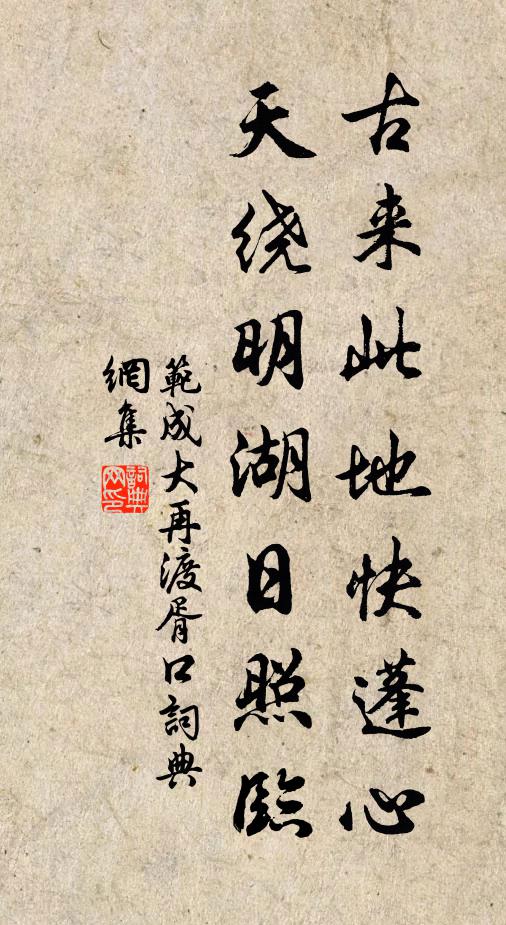 古来此地快蓬心
天绕明湖日照临
範成大再渡胥口詞典
網集
詞典
网印